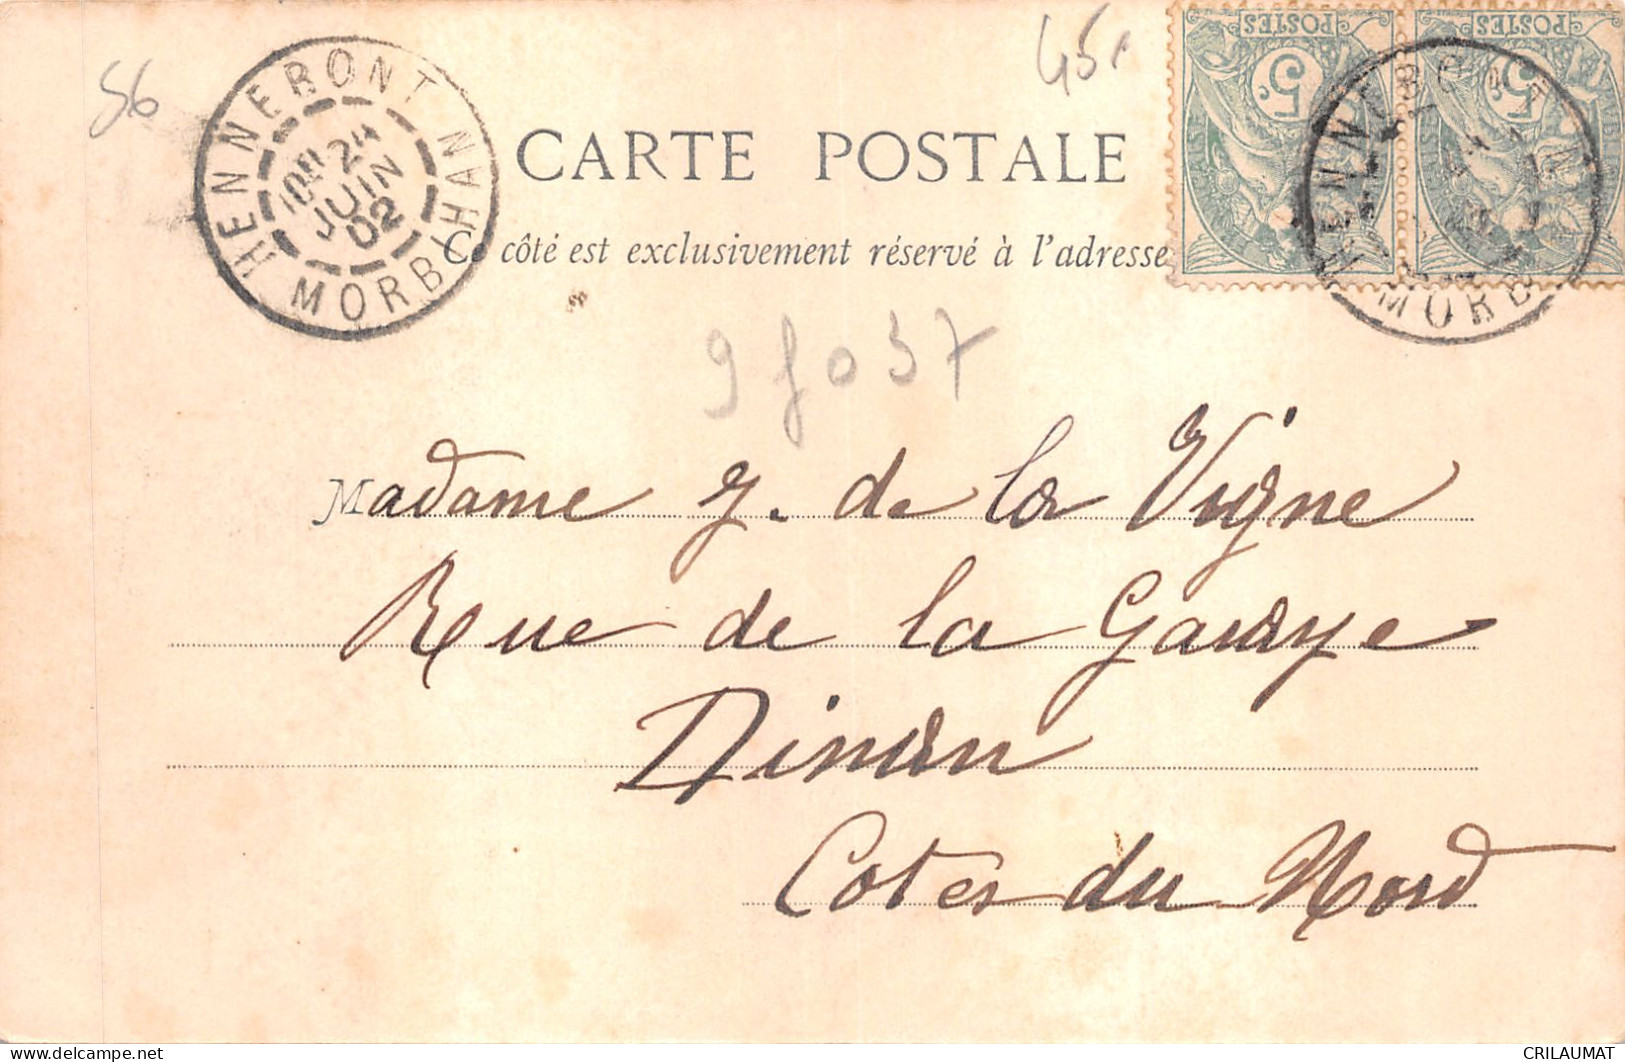 56
45
POSTES POSTES
5c. 5c.
HENNEBONT
10E 24
JUIN
02
MORBIHAN
CARTE POSTALE
Ce côté est exclusivement réservé à l'adresse
HENNEBONT
MORB
9f037
Madame J. de la Vigne
Rue de la Garaye
Dinan
Cotes du Nord
https://www.delcampe.net
CRILAUMAT